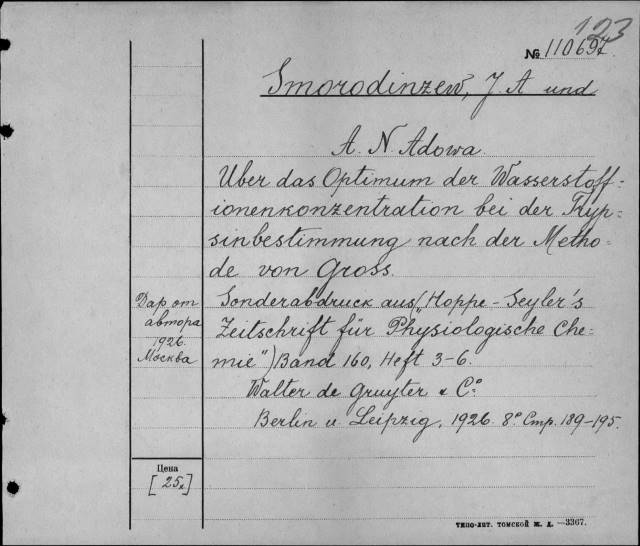 123
№ 110697
Smorodinzew, J A und
A. N. Adowa.
Uber das Optimum der Wasserstoff-
ionenkonzentration bei der Tryp-
sinbestimmung nach der Metho-
de von Gross.
Дар от
автора
1926.
Москва
Sonderabdruck aus („Hoppe-Seyler's
Zeitschrift für Physiologische Che-
mie") Band 160, Heft 3-6.
Walter de Gruyter & Co
Berlin u Leipzig, 1926. 8° Стр. 189-195.
Цена
[25к]
ТИПО-ЛИТ. ТОМСКОЙ Ж. Д. —3367.